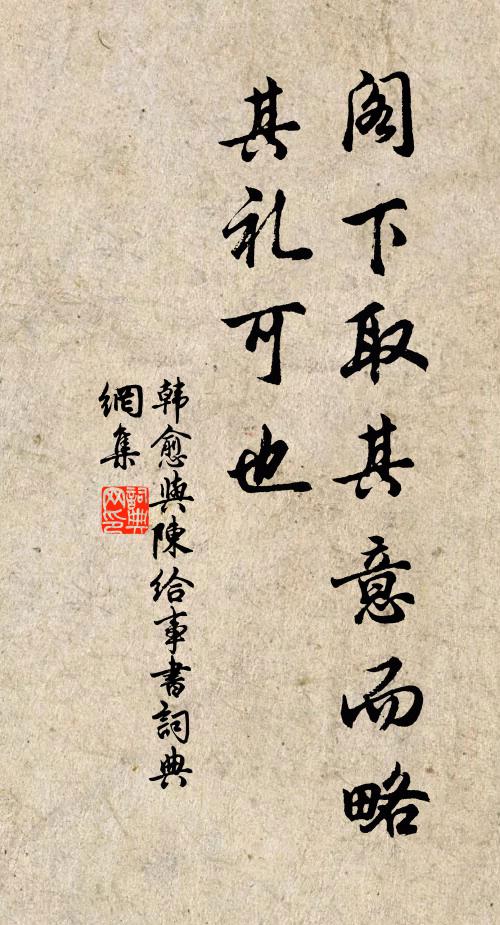 阁下取其意而略
其礼可也
韩愈與陳给事書詞典
網集
詞典
网印